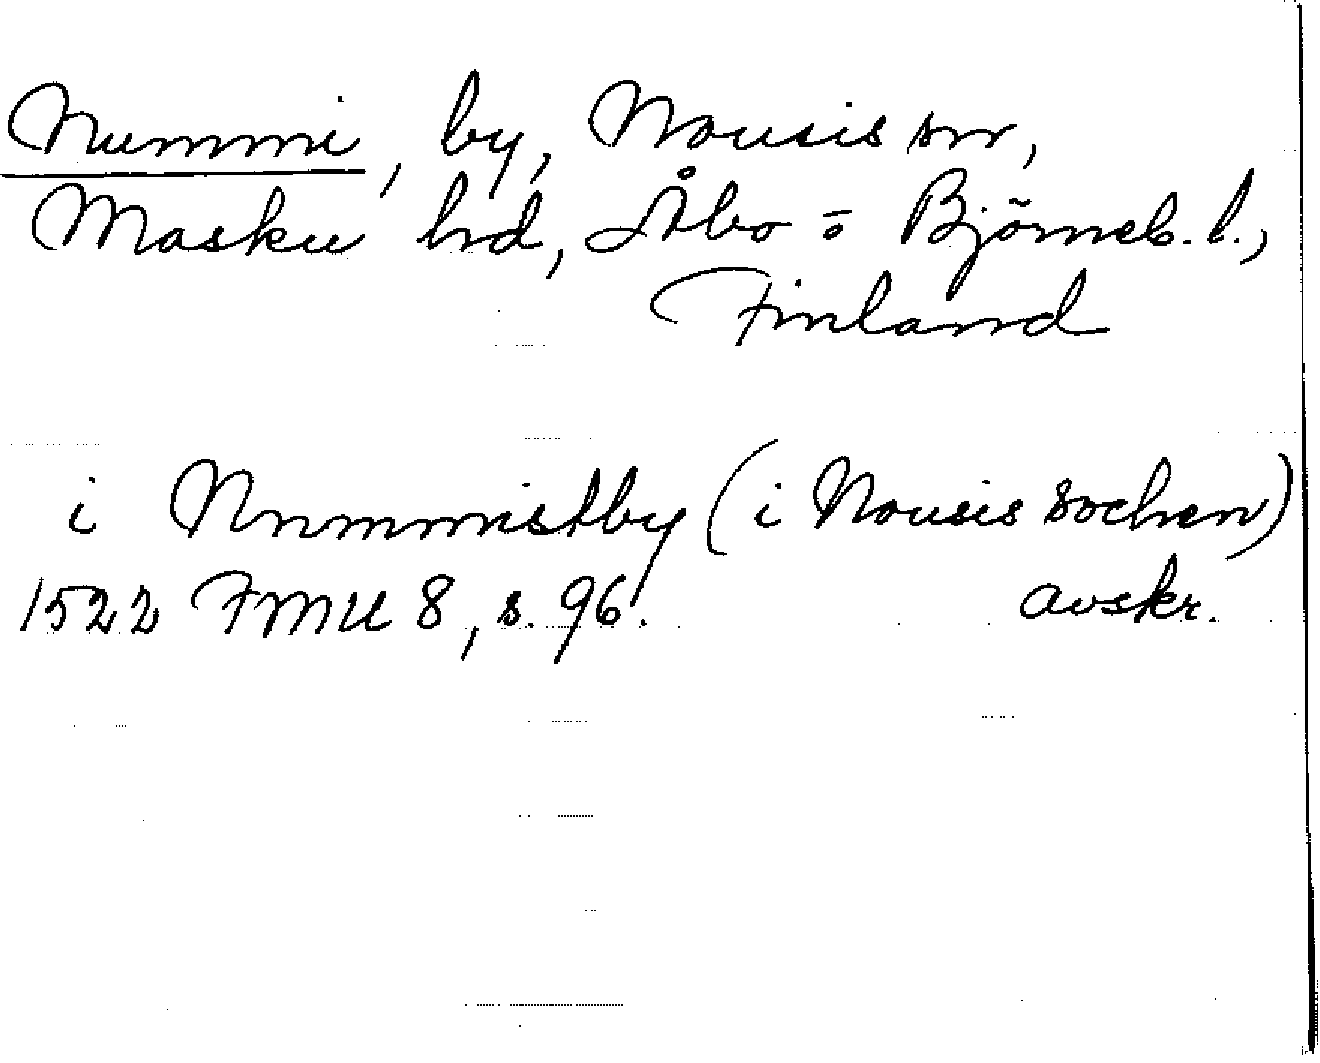 Nummi, by, Nousis sn,
Masku hd, Åbo = Björneb. l.,
Finland
i Nummistby (i Nousis sochen)
1522 FMU 8, s. 96. avskr.